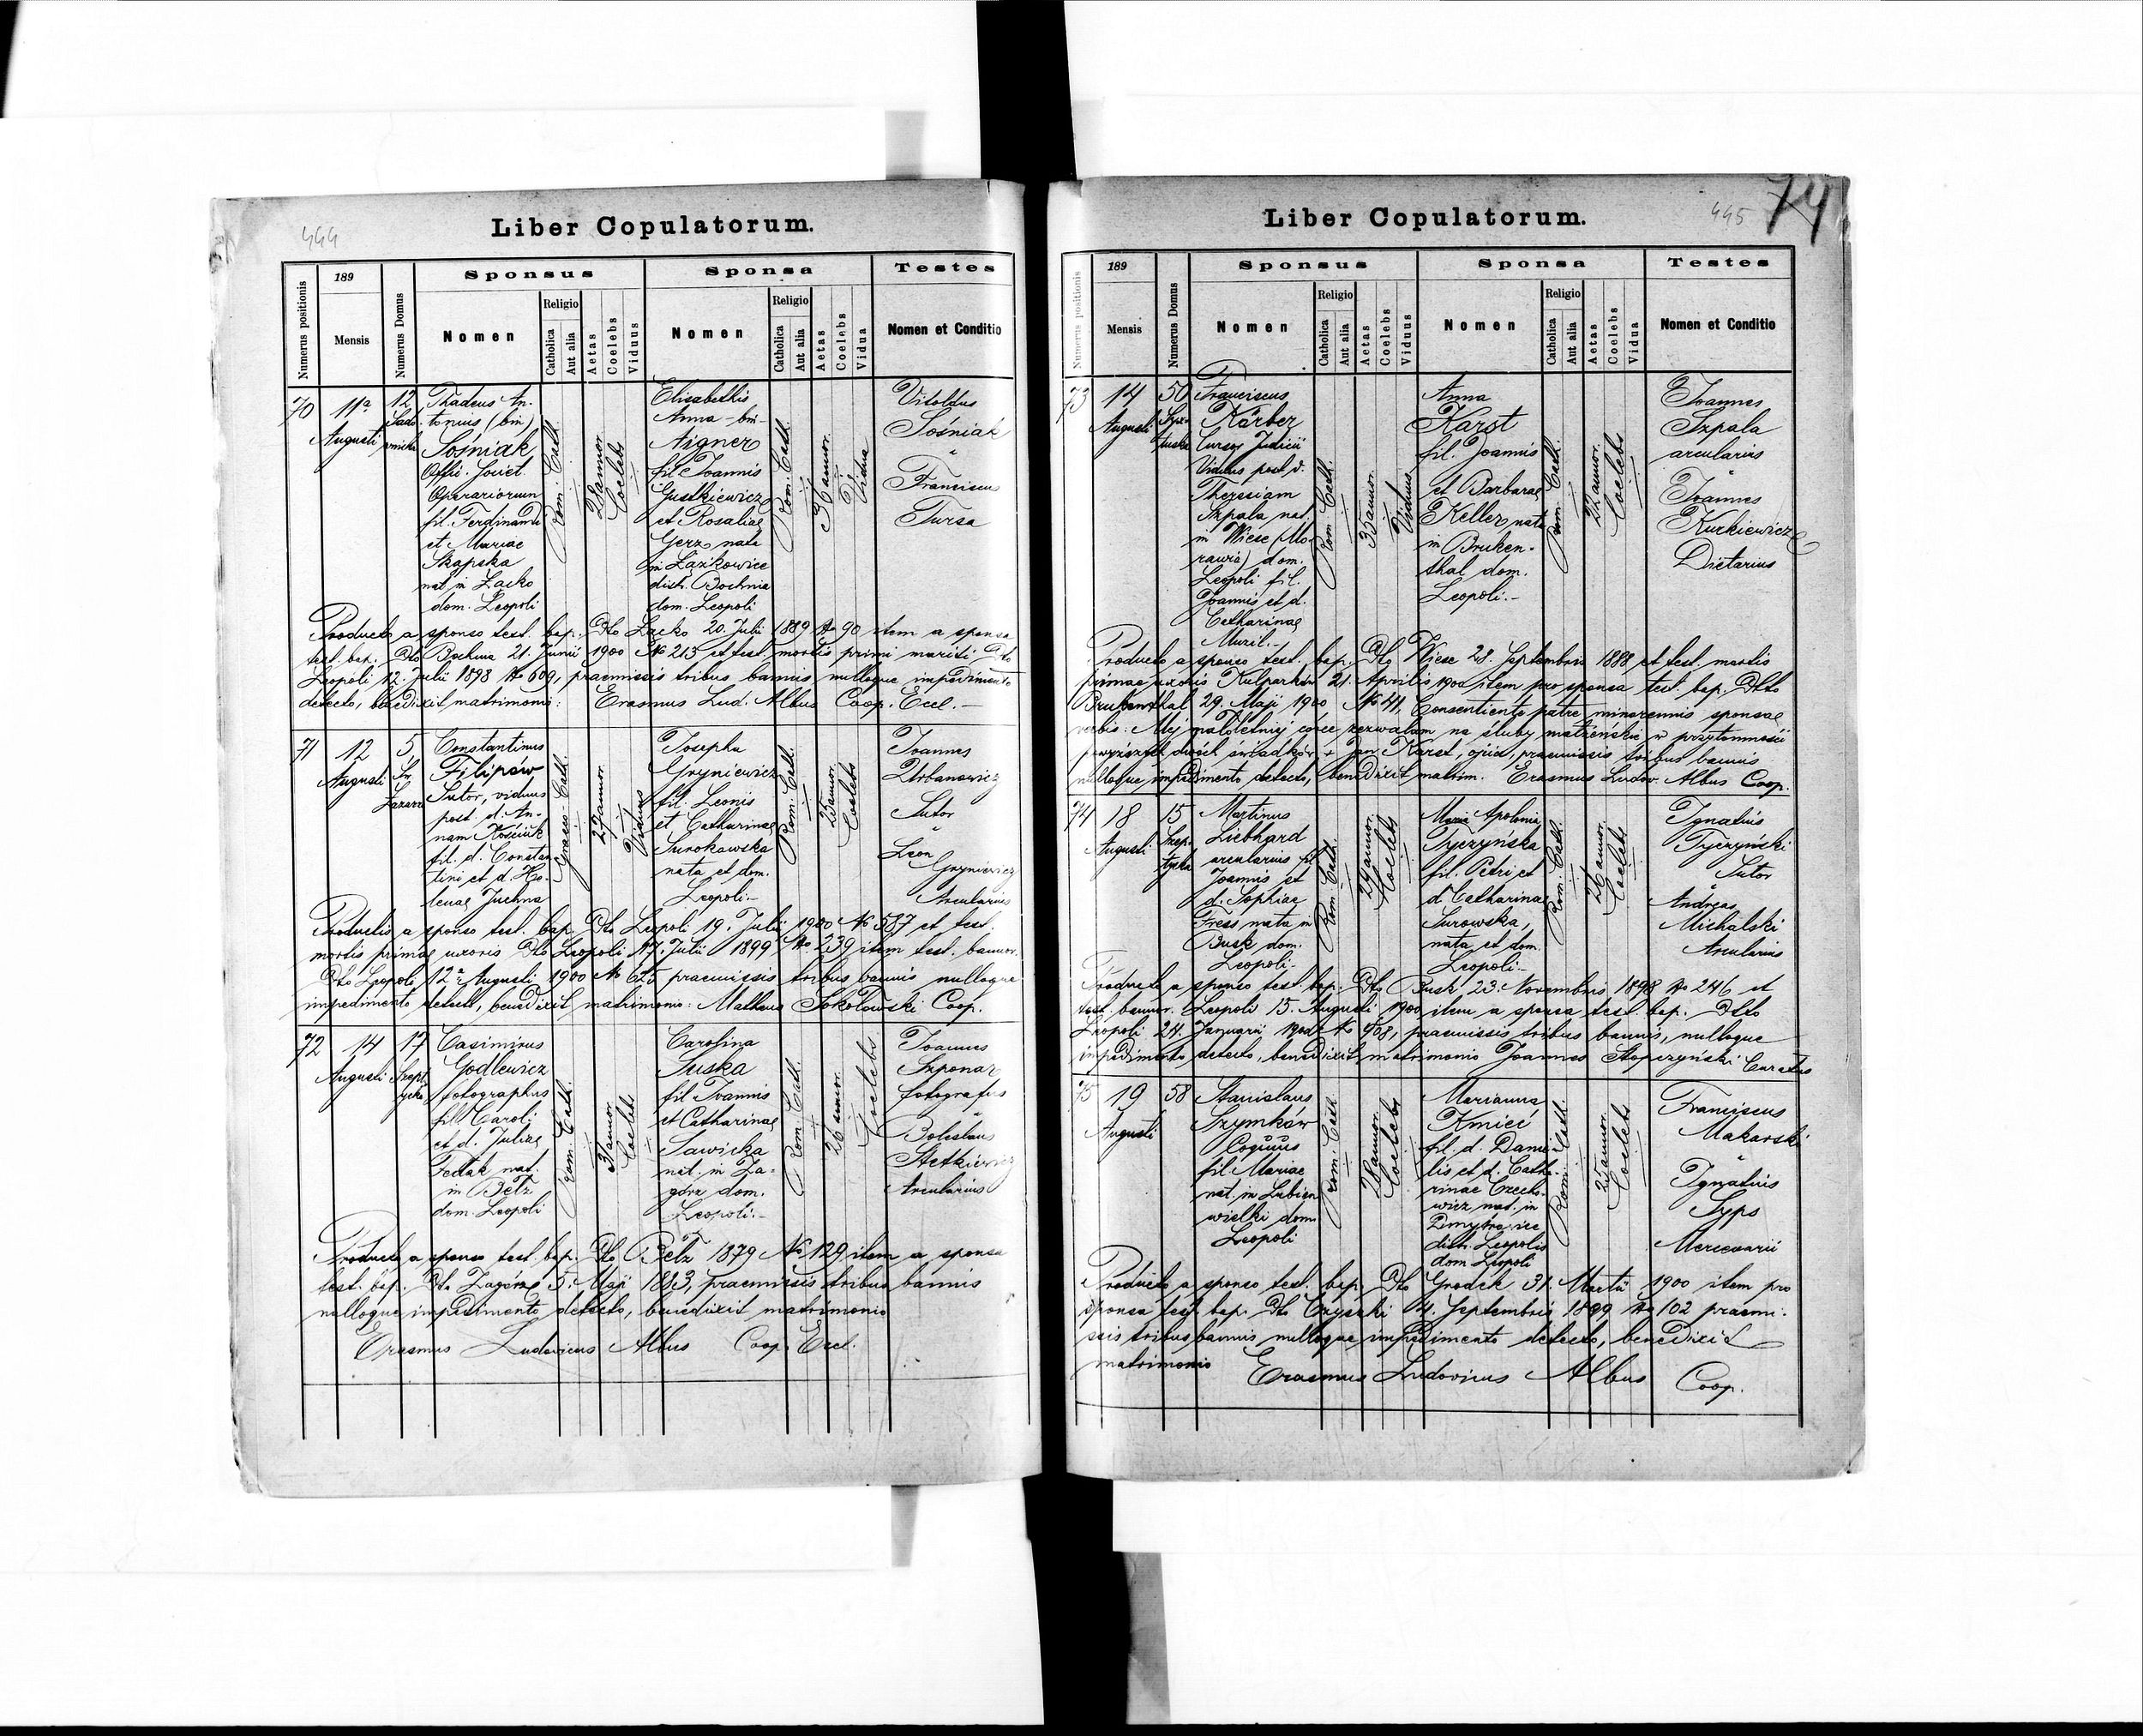 444
Liber Copulatorum.
Numerus positionis
189
Mensis
Numerus Domus
Sponsus
Nomen
Religio
Catholica
Aut alia
Aetas
Coelebs
Viduus
Sponsa
Nomen
Religio
Catholica
Aut alia
Aetas
Coelebs
Vidua
Testes
Nomen et Conditio
70
11a
Augusti
12
Thadeus An-
tonius (bin)
Sośniak
Offic. Societ.
Operariorum
fil. Ferdinandi
et Mariae
Skapska
nat. in Łącko
dom. Leopoli
Rom. Cath.
28 annor.
Coelebs
Elisabethis
Anna - bin -
Aigner
fil. Joannis
Gustkiewicz
et Rosaliae
Gerz nata
in Łazkowice
distr. Bochnia
dom. Leopoli
Rom. Cath.
36 annor.
Vidua
Vitoldus
Sośniak
"
Franciscus
Tursa
Producto a sponso test. bap. Dto Łącko 20. Julii 1889 No 90 item a sponsa
test. bap. Dto Bochnia 21. Junii 1900 No 213 et test. mortis primi mariti Dto
Leopoli 12. Julii 1898 No 609, praemissis tribus bannis nulloque impedimento
detecto, benedixit matrimonio: Erasmus Lud. Albus Coop. Eccl. -
71
12
Augusti
5
Św.
Łazarza
Constantinus
Filipów
Sutor, viduus
post. d. An-
nam Kościuk
fil. d. Constan-
tini et d. He-
lenae Juchna
Graeco Cath.
29 annor.
Viduus
Josepha
Gryniewicz
fil. Leonis
et Catharinae
Surokowska
nata et dom.
Leopoli -
Rom. Cath.
25 annor.
Coelebs
Joannes
Urbanowicz
Sutor
"
Leon
Gryniewicz
Arcularius
Productis a sponso test. bap. Dto Leopoli 19. Julii 1900 No 587 et test.
mortis primae uxoris Dto Leopoli 17. Julii 1899 No 239 item test. bannor.
Dto Leopoli 12a Augusti 1900 No 625 praemissis tribus bannis nulloque
impedimento detect, benedixit matrimonio: Matheus Sokołowski Coop.
72
14
Augusti
17
Szept
ycka
Casimirus
Godlewicz
fotographus
fil. Caroli
et d. Juliae
Fedak nat.
in Bełz
dom. Leopoli
Rom. Cath.
31 annor.
Coelebs
Carolina
Suska
fil. Joannis
et Catharinae
Sawicka
nat. in Za-
górz dom.
Leopoli -
Rom. Cath.
26 annor.
Coelebs
Joannes
Szponar
fotografus
"
Boleslaus
Stetkiewicz
Arcularius
Producto a sponso test. bap. Dto Bełz 1879 No 129 item a sponsa
test. bap. Dto Zagórze 5. Maji 1893, praemissis tribus bannis
nulloque impedimento detecto, benedixit matrimonio
Erasmus Ludovicus Albus Coop. Eccl.
445
74
Liber Copulatorum.
Numerus positionis
189
Mensis
Numerus Domus
Sponsus
Nomen
Religio
Catholica
Aut alia
Aetas
Coelebs
Viduus
Sponsa
Nomen
Religio
Catholica
Aut alia
Aetas
Coelebs
Vidua
Testes
Nomen et Conditio
73
14
Augusti
50
Franciscus
Kärber
Cursor Judicii
Viduus post d.
Theresiam
Szpala nat.
in Wiese (Mo-
rawia) dom.
Leopoli fil.
Joannis et d.
Catharinae
Muzil. -
Rom. Cath.
33 annor.
Viduus
Anna
Karst
fil. Joannis
et Barbarae
Keller nata
in Bruken-
thal dom.
Leopoli. -
Rom. Cath.
22 annor.
Coelebs
Joannes
Szpala
arcularius
"
Joannes
Kurkiewicz
Dietarius
Producto a sponso test. bap. Dto Wiese 28. Septembris 1888 et test. mortis
primae uxoris Kulparków 21. Aprilis 1900 item pro sponsa test. bap. Dtto
Brukenthal 29. Maji 1900 No 41, Consentiente patre minorennis sponsae
verbis: Mej małoletniej córce zezwalam na śluby małżeńskie w przytomności
powyższych dwóch świadków + Jan Karst ojciec, praemissis tribus bannis
nulloque impedimento detecto, benedixit matrim. Erasmus Ludov. Albus Coop.
74
18
Augusti
15
Szep-
tycka
Martinus
Liebhard
arcularius fil.
Joannis et
d. Sophiae
Fress nata in
Busk dom.
Leopoli -
Rom. Cath.
29 annor.
Coelebs
Maria Apolonia
Tyczyńska
fil. Petri et
d. Catharinae
Surowska,
nata et dom.
Leopoli -
Rom. Cath.
26 annor.
Coelebs
Ignatius
Tyczyński
Sutor
"
Andreas
Michalski
Arcularius
Producto a sponso test. bap. Dto Busk 23. Novembris 1898 No 246 et
test. bannor. Leopoli 15. Augusti 1900 item a sponsa test. bap. Dtto
Leopoli 24. Januarii 1900 No 908, praemissis tribus bannis, nulloque
impedimento detecto, benedixit matrimonio Joannes Stopczyński Curatus
75
19
Augusti
58
Stanislaus
Szymków
Coquus
fil. Mariae
nat. in Lubień
wielki dom.
Leopoli
Rom. Cath.
28 annor.
Coelebs
Marianna
Kmieć
fil. d. Danie-
lis et d. Catha-
rinae Czecho-
wicz nat. in
Dmytrowice
distr. Leopolis
dom. Leopoli
Rom. Cath.
25 annor.
Coelebs
Franciscus
Makarski
"
Ignatius
Syps
Mercenarii
Producto a sponso test. bap. Dto Grodek 31. Martii 1900 item pro
sponsa test. bap. Dto Czyszki 4. Septembris 1899 No 102 praemi-
ssis tribus bannis nulloque impedimento detecto, benedixit
matrimonio Erasmus Ludovicus Albus Coop.